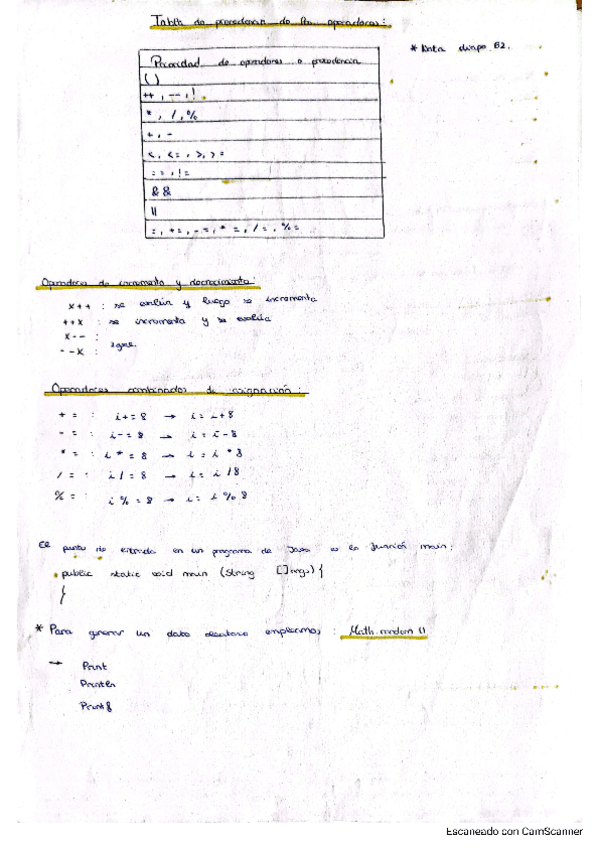 Tabla de precedencia de los operadores:
* Nota diapo 62.
Prioridad de operadores o precedencia
( )
++ , -- , !
* , / , %
+ , -
< , <= , > , >=
== , !=
&&
||
= , += , -= , *= , /= , %=
Operadores de incremento y decrecimiento:
x++ : se evalúa y luego se incrementa
++x : se incrementa y se evalúa
x-- :
--x : igual.
Operadores combinados de asignación:
+= : i+=8 → i=i+8
-= : i-=8 → i=i-8
*= : i*=8 → i=i*8
/= : i/=8 → i=i/8
%= : i%=8 → i=i%8
El punto de entrada en un programa de Java es la función main:
public static void main (String []args) {
}
* Para generar un dato aleatorio empleamos : Math.random ()
→ Print
Println
Printf
Escaneado con CamScanner